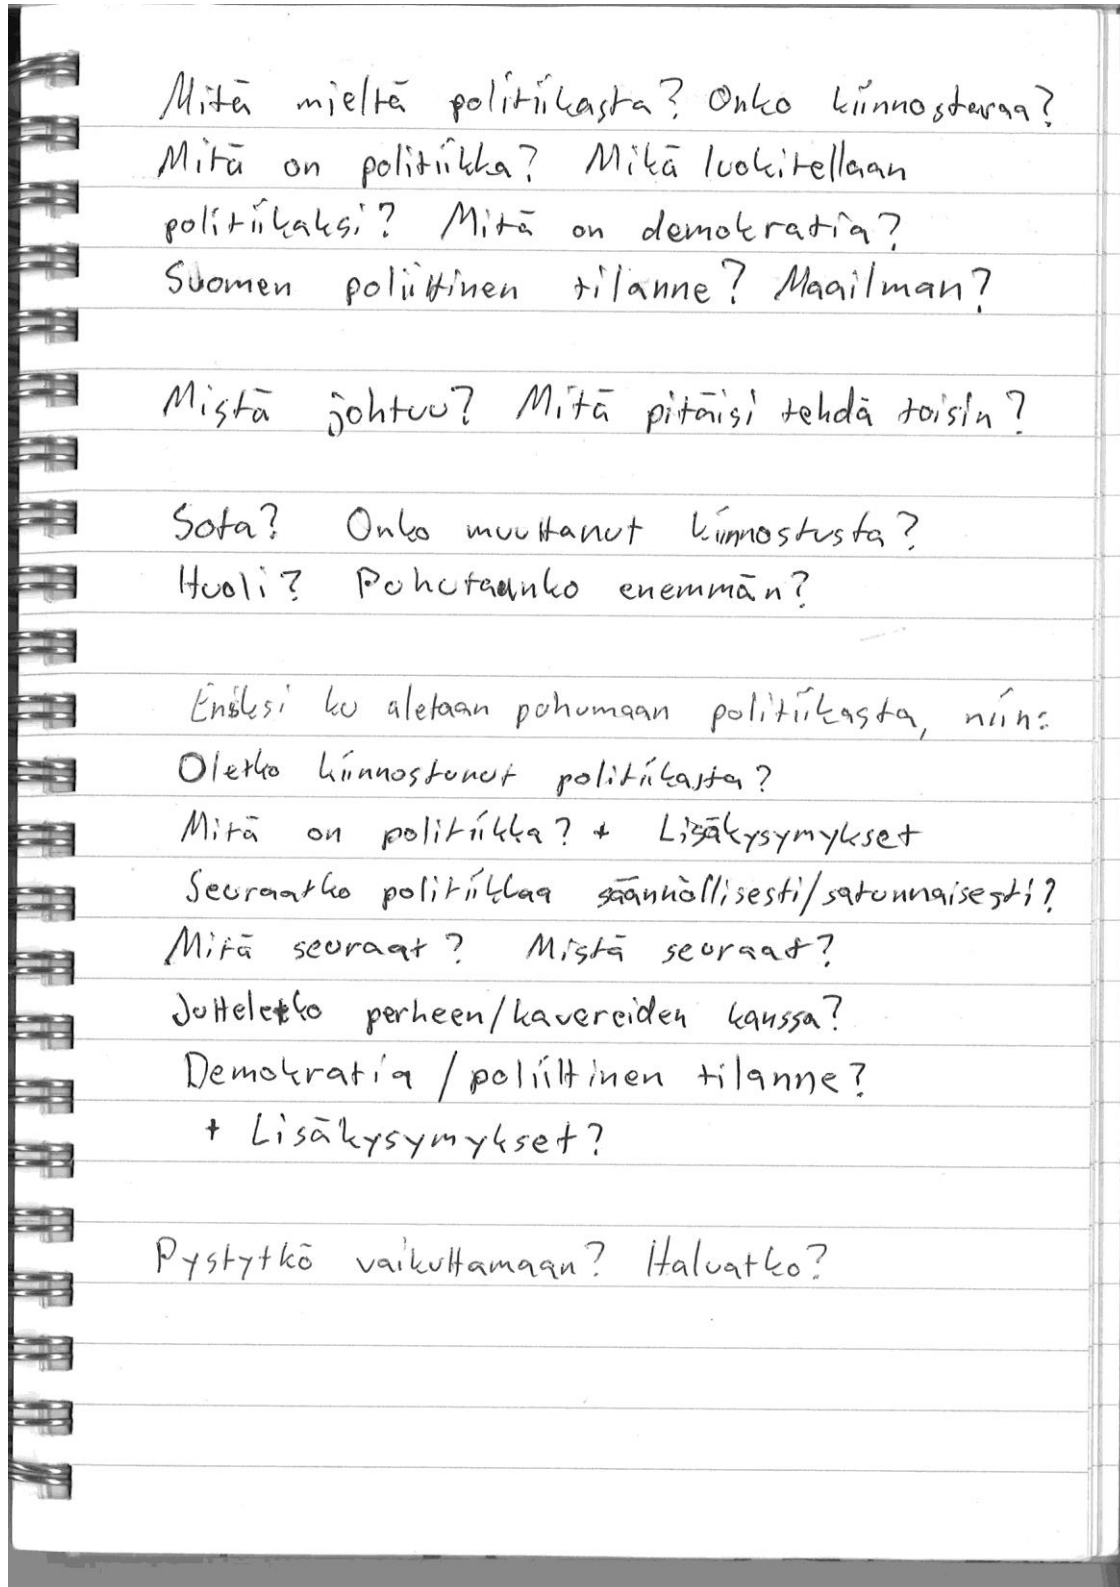 Mitä mieltä politiikasta? Onko kiinnostavaa?
Mitä on politiikka? Mikä luokitellaan
politiikaksi? Mitä on demokratia?
Suomen poliittinen tilanne? Maailman?
Mistä johtuu? Mitä pitäisi tehdä toisin?
Sota? Onko muuttanut kiinnostusta?
Huoli? Puhutaanko enemmän?
Eniksi ku aletaan puhumaan politiikasta, niin:
Oletko kiinnostunut politiikasta?
Mitä on politiikka? + Lisäkysymykset
Seuraatko politiikkaa säännöllisesti/satunnaisesti?
Mitä seuraat? Mistä seuraat?
Jutteletko perheen/kavereiden kanssa?
Demokratia / poliittinen tilanne?
+ Lisäkysymykset?
Pystytkö vaikuttamaan? Haluatko?